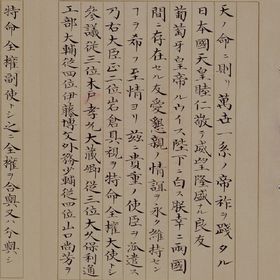 天ノ命ニ則リ萬世一系ノ帝祚ヲ踐タル
日本國天皇睦仁敬テ威望隆盛ナル良友
葡萄牙皇帝ルウイス陛下ニ白ス朕幸ニ兩國
間ニ存セル友愛懇親ノ情誼ヲ永ク維持セン
コヲ希フ至情ヨリ茲ニ貴重ノ使臣ヲ派遣ス
乃右大臣正二位岩倉具視ヲ特命全權大使トシ
參議從三位木戸孝允大蔵卿從三位大久保利通
工部大輔從四位伊藤博文外務少輔從四位山口尚芳ヲ
特命全權副使トシ之ニ全權ヲ合與又ハ分與シ